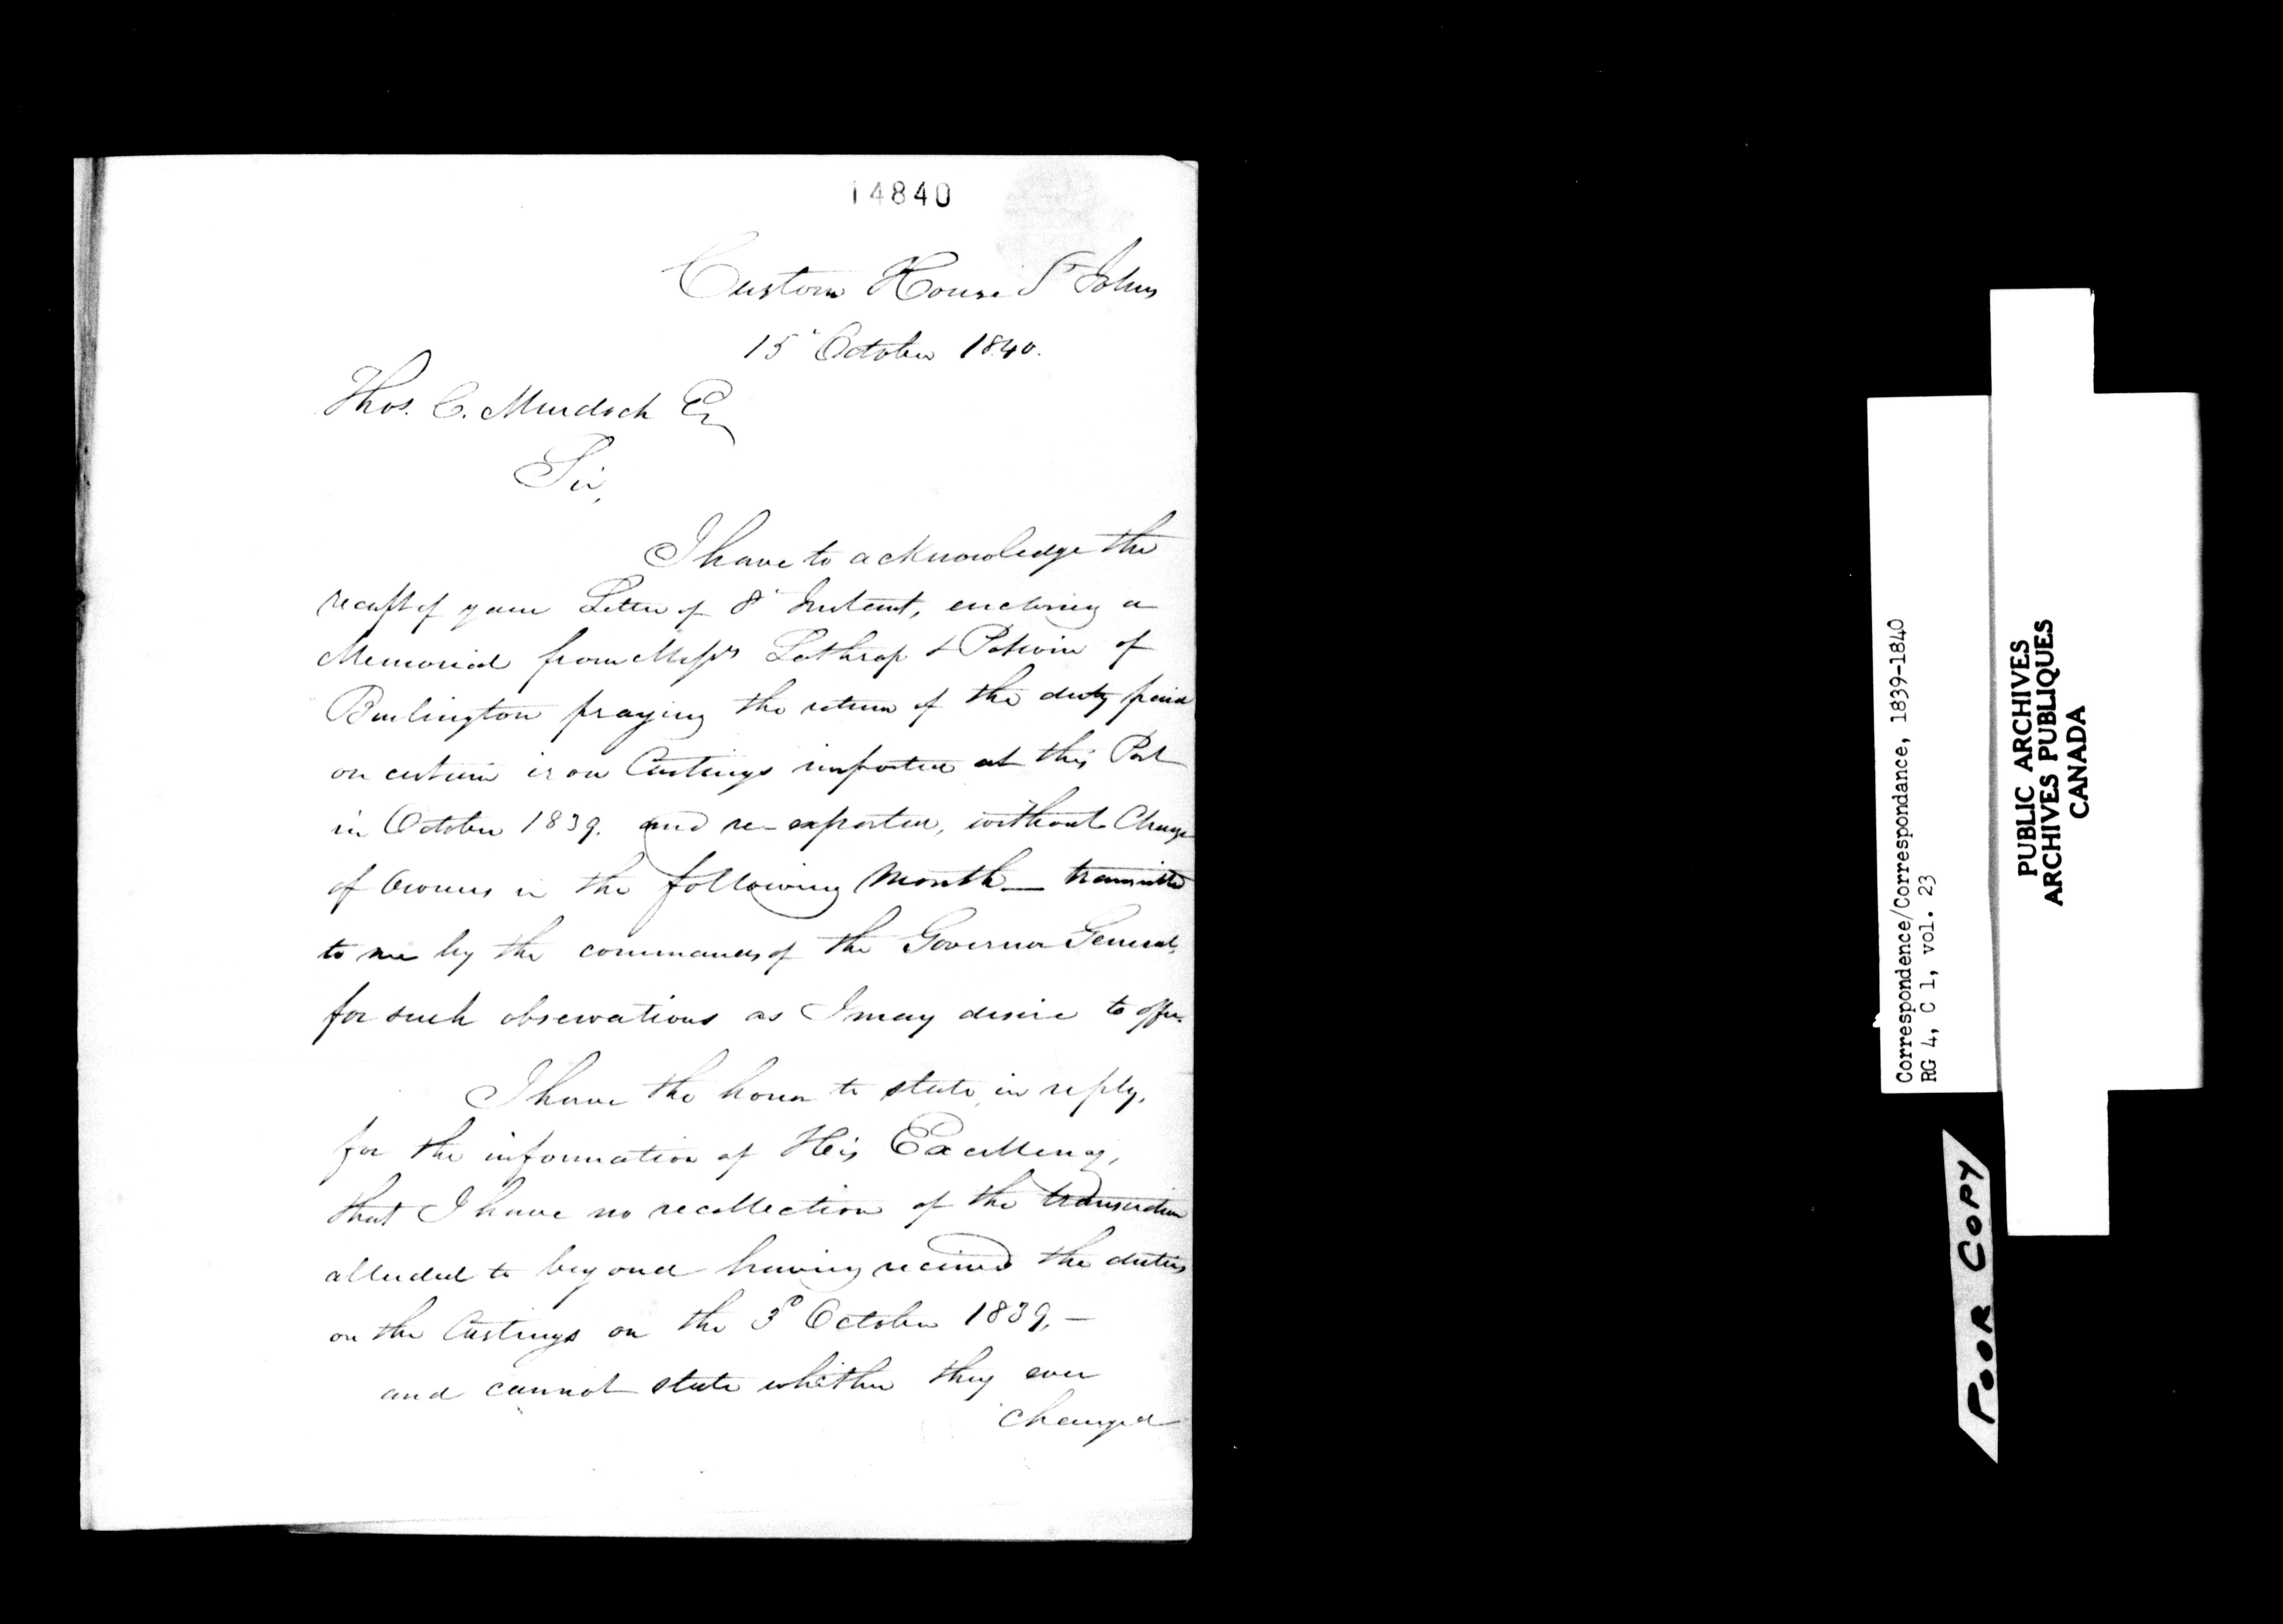 14840
Custom House St Johns
15 October 1840.
Thos. C. Murdoch Esq
Sir,
I have to acknowledge the
receipt of your Letter of 8 Instant, enclosing a
Memorial from Messrs Lathrop & Potwin of
Burlington praying the return of the duty paid
on certain iron Castings imported at this Port
in October 1839. and re-exported, without Change
of Owners in the following Month — transmitted
to me by the commands of the Governor General,
for such observations as I may desire to offer.
I have the honor to state, in reply,
for the information of His Excellency,
that I have no recollection of the transaction
alluded to beyond having received the duties
on the Castings on the 3d October 1839, —
and cannot state whether they ever
changed
Correspondence/Correspondance, 1839-1840
RG 4, C 1, vol. 23
PUBLIC ARCHIVES
ARCHIVES PUBLIQUES
CANADA
POOR COPY